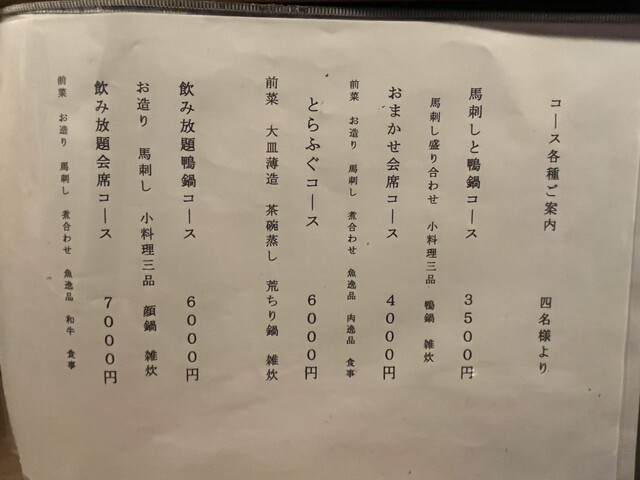 コース各種ご案内　四名様より
馬刺しと鴨鍋コース　３５００円
馬刺し盛り合わせ　小料理三品　鴨鍋　雑炊
おまかせ会席コース　４０００円
前菜　お造り　馬刺し　煮合わせ　魚逸品　肉逸品　食事
とらふぐコース　６０００円
前菜　大皿薄造　茶碗蒸し　荒ちり鍋　雑炊
飲み放題鴨鍋コース　６０００円
お造り　馬刺し　小料理三品　顔鍋　雑炊
飲み放題会席コース　７０００円
前菜　お造り　馬刺し　煮合わせ　魚逸品　和牛　食事